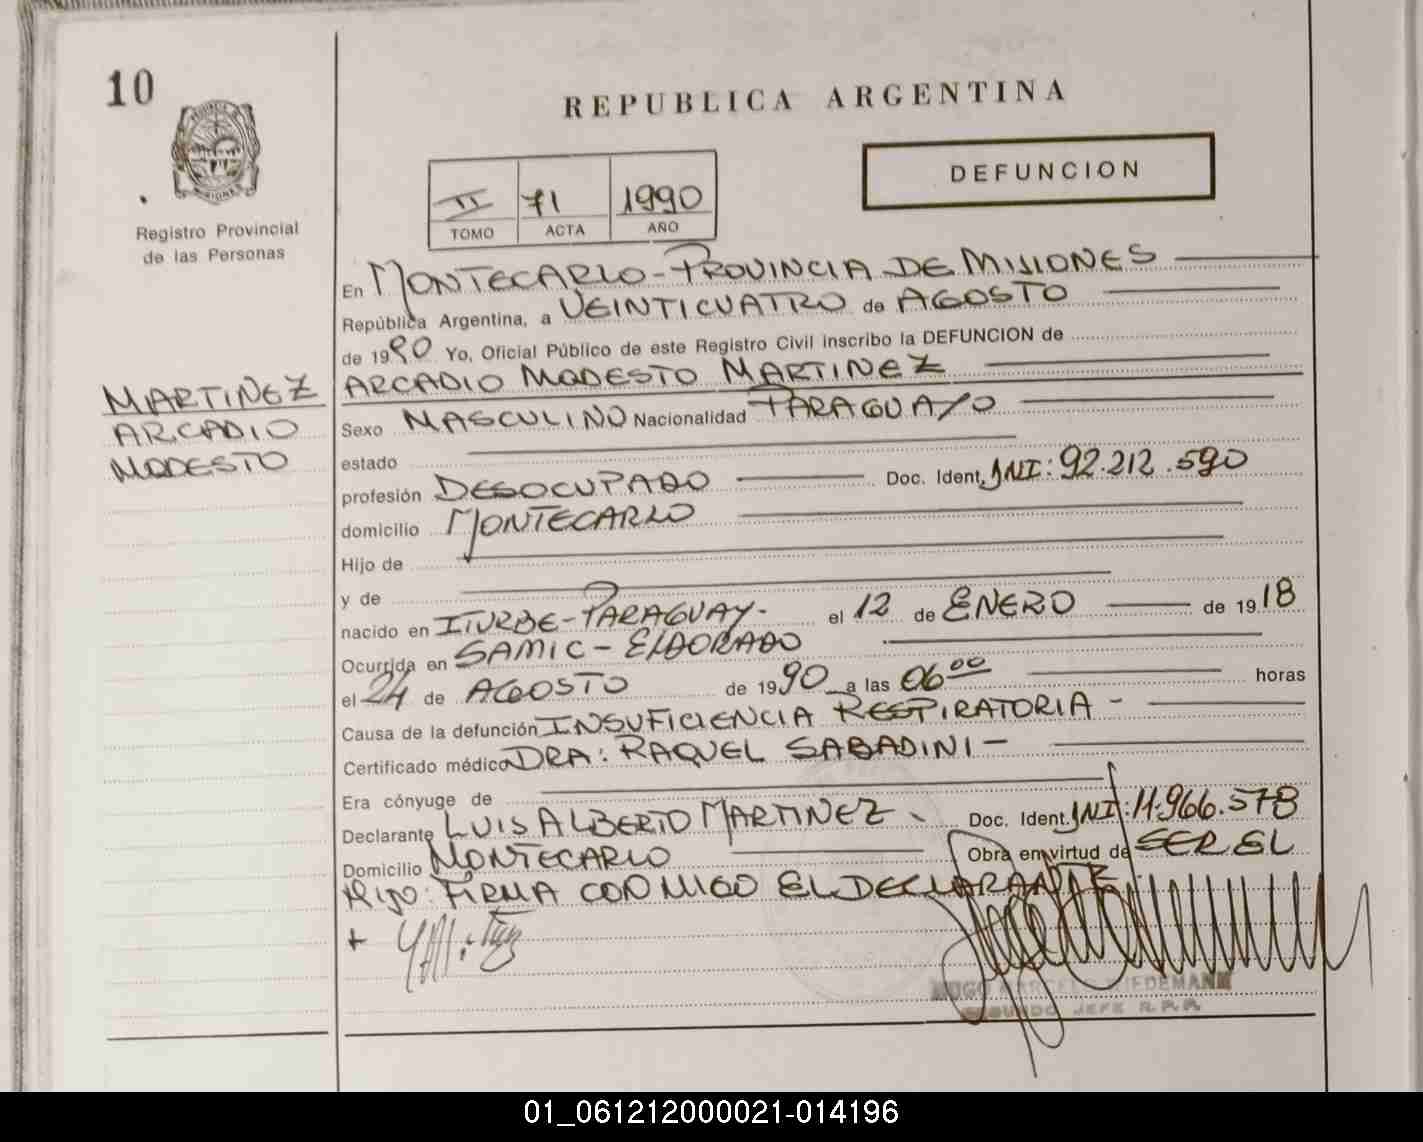 10
REPUBLICA ARGENTINA
DEFUNCION
II 71 1990
TOMO ACTA AÑO
Registro Provincial
de las Personas
En MONTECARLO - PROVINCIA DE MISIONES
República Argentina, a VEINTICUATRO de AGOSTO
de 1990 Yo, Oficial Público de este Registro Civil inscribo la DEFUNCION de
MARTINEZ
ARCADIO
MODESTO
ARCADIO MODESTO MARTINEZ
Sexo MASCULINO Nacionalidad PARAGUAYO
estado
profesión DESOCUPADO Doc. Ident. DNI: 92.212.590
domicilio MONTECARLO
Hijo de
y de
nacido en ITURBE - PARAGUAY - el 12 de ENERO de 1918
Ocurrida en SAMIC - ELDORADO
el 24 de AGOSTO de 1990 a las 06 00 horas
Causa de la defunción INSUFICIENCIA RESPIRATORIA -
Certificado médico DRA: RAQUEL SABADINI -
Era cónyuge de
Declarante LUIS ALBERTO MARTINEZ - Doc. Ident. DNI: 11.966.578
Domicilio MONTECARLO Obra en virtud de SER EL
HIJO: FIRMA CONMIGO EL DECLARANTE
SEGUNDO JEFE R.P.P.
01_061212000021-014196